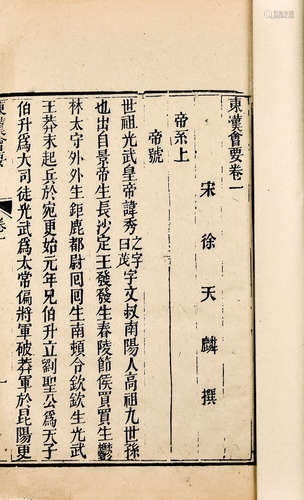 東漢會要卷一
宋徐天麟撰
帝系上
帝號
世祖光武皇帝諱秀之字曰茂字文叔南陽人高祖九世孫
也出自景帝生長沙定王發發生舂陵節侯買買生鬱
林太守外外生鉅鹿都尉囘囘生南頓令欽欽生光武
王莽末起兵於宛更始元年兄伯升立劉聖公爲天子
伯升爲大司徒光武爲太常偏將軍破莽軍於昆陽更
東漢會要
卷一
一